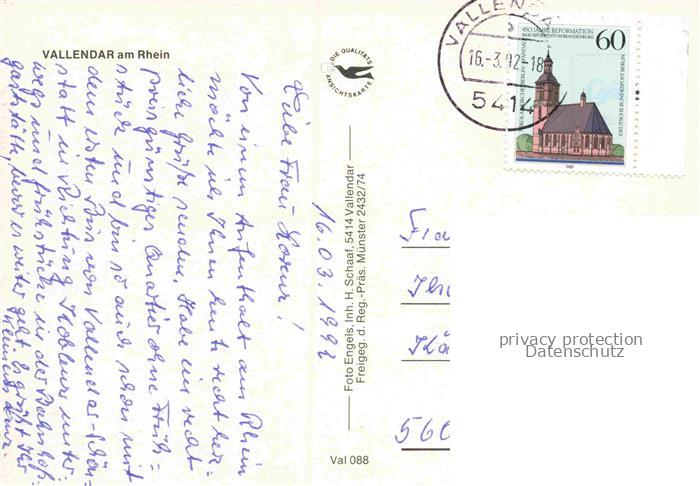 VALLENDAR am Rhein
DIE QUALITÄTS
ANSICHTSKARTE
VALLENDAR
16.-3.92-18
5414
450 JAHRE REFORMATION
60
DEUTSCHE BUNDESPOST BERLIN
1989
16.03.1992
Liebe Frau
Von einem Aufenthalt am Rhein
möchte ich Ihnen heute recht herz=
liche Grüße senden. Habe ein recht
preisgünstiges Quartier ohne Früh=
stück und bin so auch schon mit
dem ersten Bus von Vallendar-Schön=
statt in Richtung Koblenz unter=
wegs und frühstücke in der Bahnhofs=
gaststätte, bevor es weiter geht. Es grüßt Ihr
Foto Engels, Inh. H. Schaaf, 5414 Vallendar
Freigeg. d. Reg.-Präs. Münster 2432/74
Val 088
560
privacy protection
Datenschutz